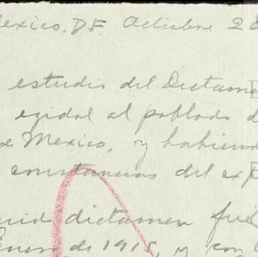 Mexico, D.F. Octubre 2
estudio del Dictam
egidal al poblado d
de Mexico, y habiend
constancias del exp
dictamen fu
Enero de 1915, y con